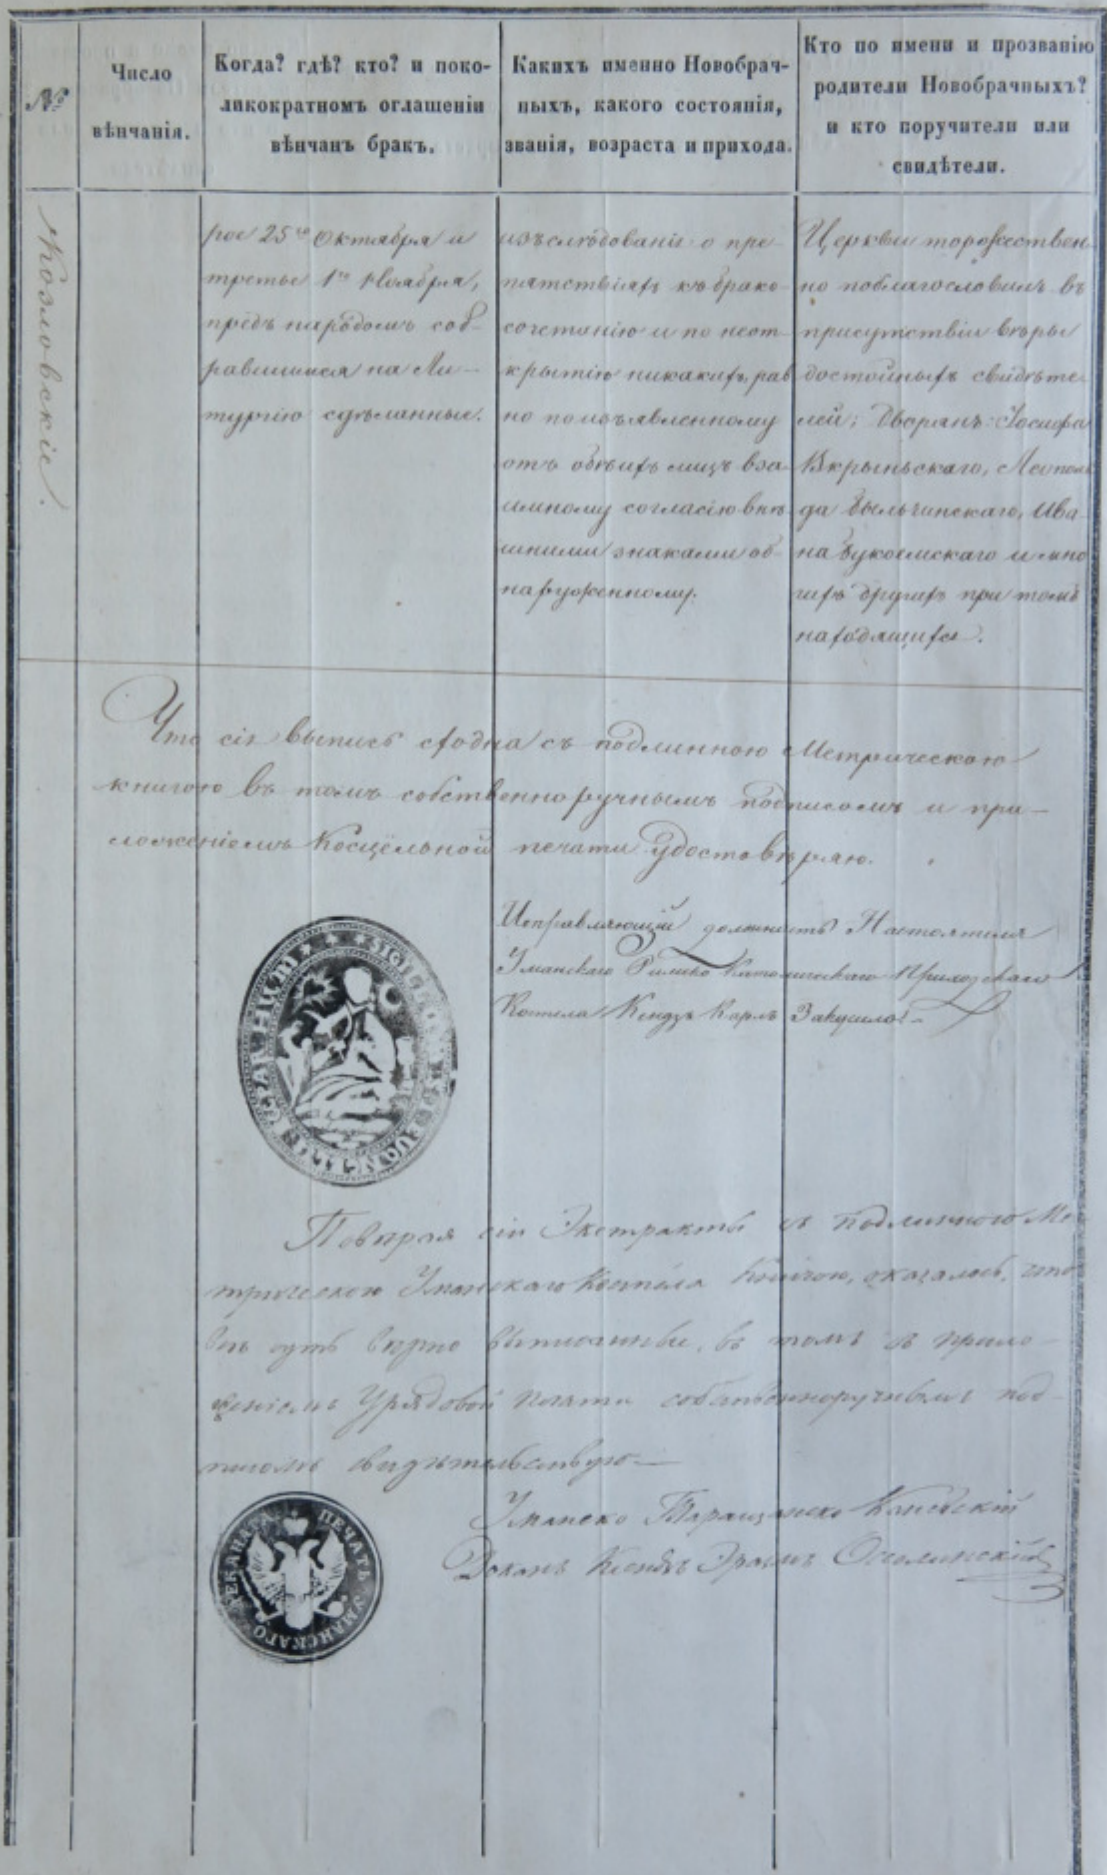 №
Число
вѣнчанія.
Когда? гдѣ? кто? и поко-
ликократномъ оглашеніи
вѣнчанъ бракъ.
Какихъ именно Новобрач-
ныхъ, какого состоянія,
званія, возраста и прихода.
Кто по имени и прозванію
родители Новобрачныхъ?
и кто поручители или
свидѣтели.
Козловскіе.
рое 25го Октября и
третье 1го Ноября,
предъ народомъ соб-
равшимся на Ли-
тургію сдѣланные.
изъслѣдованіе о пре-
пятствіяхъ къ брако-
сочетанію и по неот-
крытію никакихъ, рав
но по изъявленному
отъ обѣихъ лицъ вза-
имному согласію внѣ
шними знаками об-
наруженному.
Церкви торжествен-
но поблагословилъ въ
присутствіи вѣры
достойныхъ свидѣте-
лей; Дворянъ: Іосифа
Леопол
да Ива-
на и мно
гихъ другихъ при томъ
находящихся.
Что сія выпись сходна съ подлинною Метрическою
книгою въ томъ собственноручнымъ подписомъ и при-
ложеніемъ Косцёльной печати удостовѣряю.
Исправляющій должность Настоятеля
Уманскаго Римско Католическаго Приходскаго
Костела Ксендзъ Карлъ
Повѣряя сіи Экстракты съ подлинною Ме-
трическою Уманскаго Костёла Книгою, оказалось, что
всѣ суть вѣрно выписанные, въ томъ съ прило-
женіемъ Урядовой печати собственноручнымъ под-
писомъ свидѣтельствую
Уманско Таращанско Каневскій
Деканъ Ксендзъ
ПЕЧАТЬ УМАНСКАГО ДЕКАНАТА